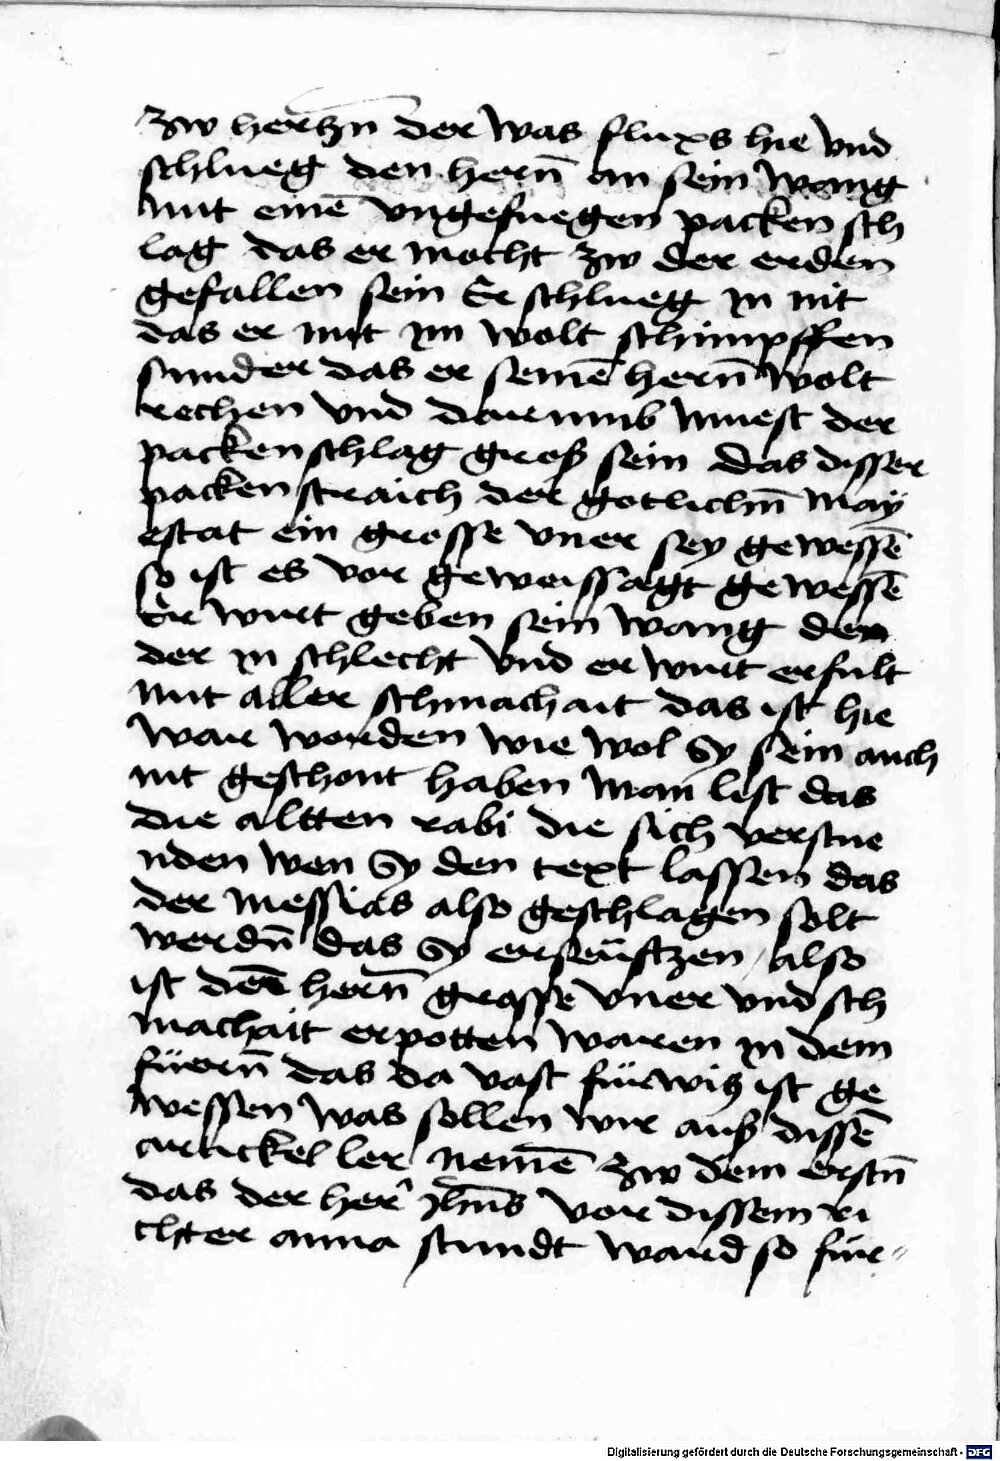 zw hertzn̄ der was fluxs hie vnd
schlueg den hern̄ an sein wang
mit einē vngefuegen packen sch
lag das er mocht zw der erden
gefallen sein Er schlueg in nit
das er mit im wolt schimpffen
sunder das er seinē hern̄ wolt
rechen vnd darumb muest der
packenschlag groß sein das disser
packen straich der gotlichn̄ may
estat ein grosse vner sey gewessē
so ist es vor geweissagt gewessē
Er wirt geben sein wang dem
der in schlecht vnd er wirt erfult
mit aller schmachait das ist hie
war worden wie wol sy sein auch
nit geschont haben man list das
die altten rabi die sich verstue
nden wen sy den text lassen das
der messias also geschlagen solt
werdn̄ das sy erseufftzen / also
ist dem hern̄ grosse vner vnd sch
machait erpotten waren in dem
füern̄ das da vast fürwitz ist ge
wessen was sollen wir auß dissē
artickel ler nemē zw dem erstn̄
das der her Jhūs vor dissem ri
chter anna stundt ward so für-